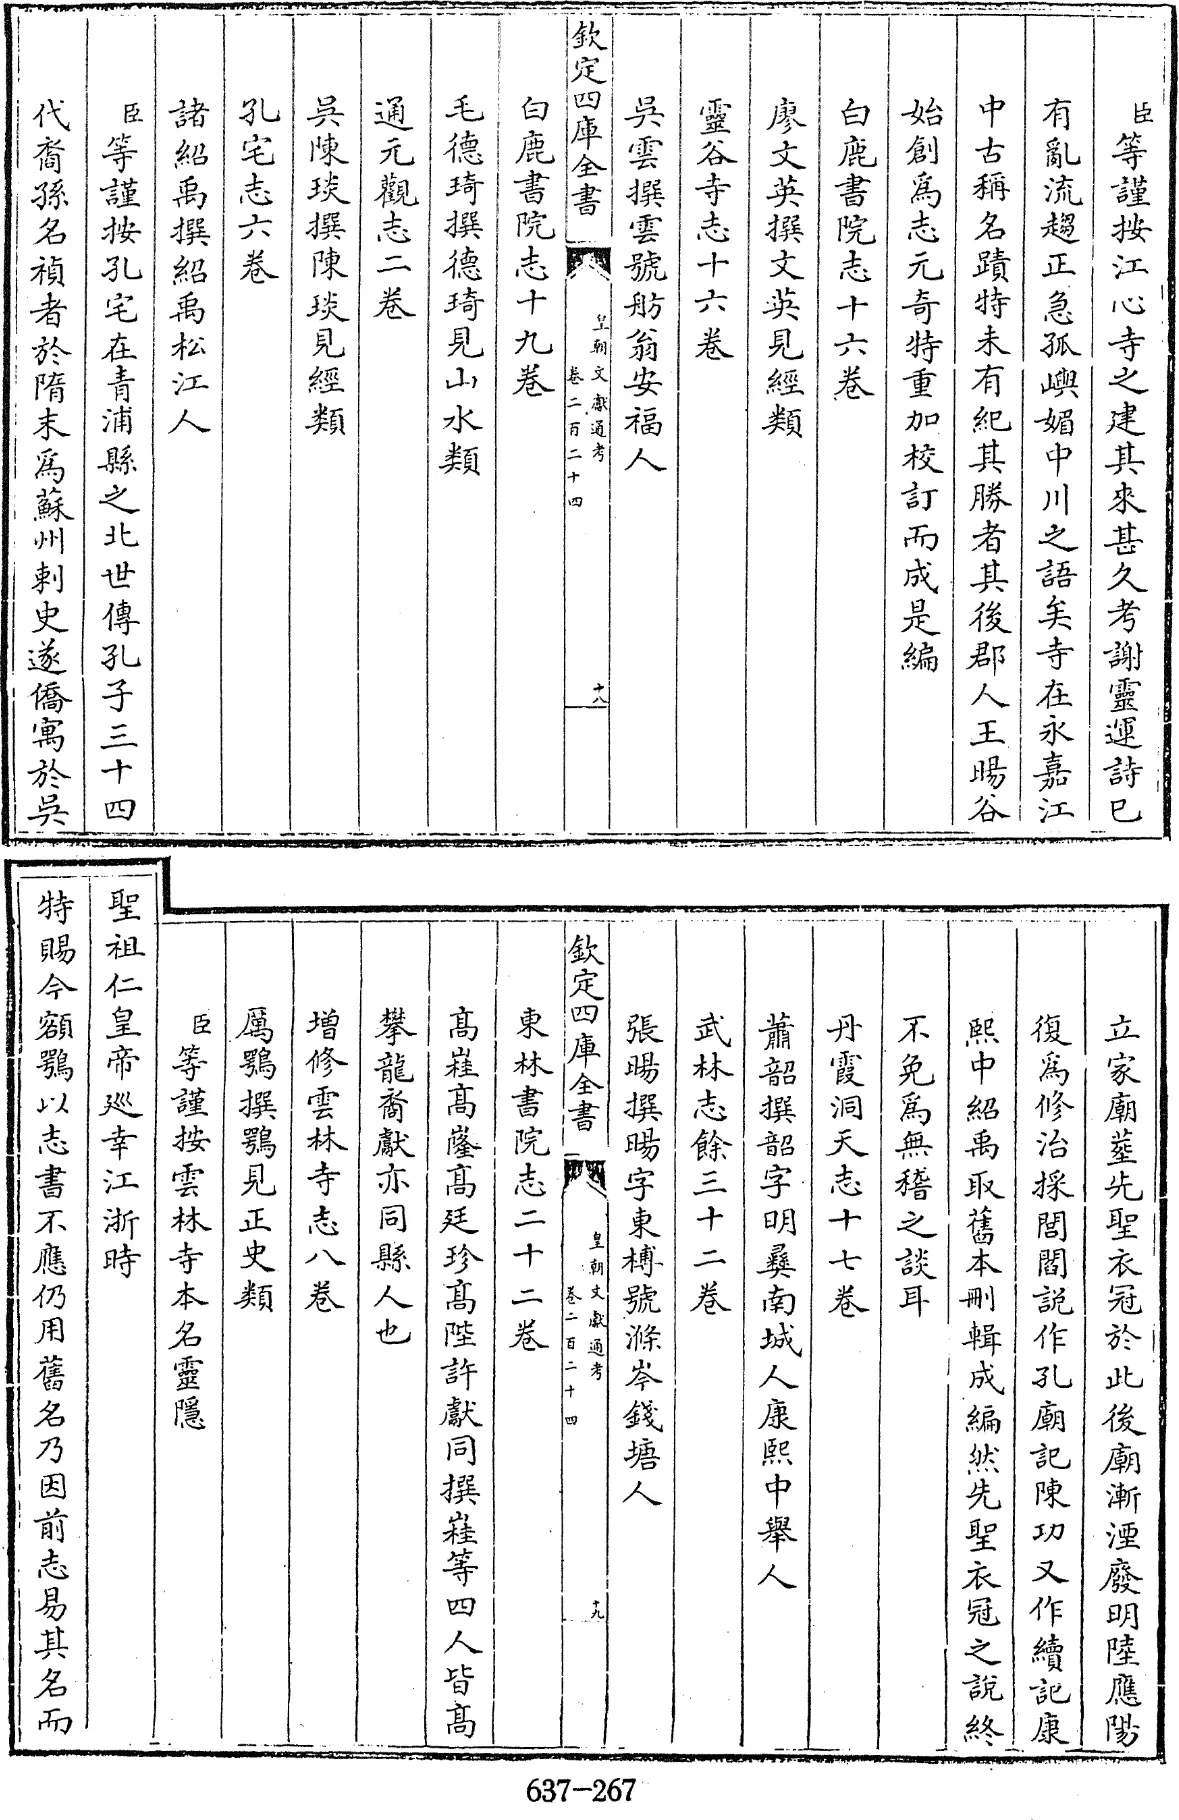 臣等謹按江心寺之建其來甚久考謝靈運詩已
有亂流趨正急孤嶼媚中川之語矣寺在永嘉江
中古稱名蹟特未有紀其勝者其後郡人王暘谷
始創爲志元奇特重加校訂而成是編
白鹿書院志十六卷
廖文英撰文英見經類
靈谷寺志十六卷
吳雲撰雲號舫翁安福人
欽定四庫全書
皇朝文獻通考
卷二百二十四
十八
白鹿書院志十九卷
毛德琦撰德琦見山水類
通元觀志二卷
吳陳琰撰陳琰見經類
孔宅志六卷
諸紹禹撰紹禹松江人
臣等謹按孔宅在青浦縣之北世傳孔子三十四
代裔孫名禎者於隋末爲蘇州刺史遂僑寓於吳
立家廟塟先聖衣冠於此後廟漸湮廢明陸應陽
復爲修治採閭閻說作孔廟記陳功又作續記康
熙中紹禹取舊本刪輯成編然先聖衣冠之說終
不免爲無稽之談耳
丹霞洞天志十七卷
蕭韶撰韶字明彝南城人康熙中舉人
武林志餘三十二卷
張暘撰暘字東榑號滌岑錢塘人
欽定四庫全書
皇朝文獻通考
卷二百二十四
十九
東林書院志二十二卷
高嵀高嶐高廷珍高陛許獻同撰嵀等四人皆高
攀龍裔獻亦同縣人也
增修雲林寺志八卷
厲鶚撰鶚見正史類
臣等謹按雲林寺本名靈隱
聖祖仁皇帝廵幸江浙時
特賜今額鶚以志書不應仍用舊名乃因前志易其名而
637-267